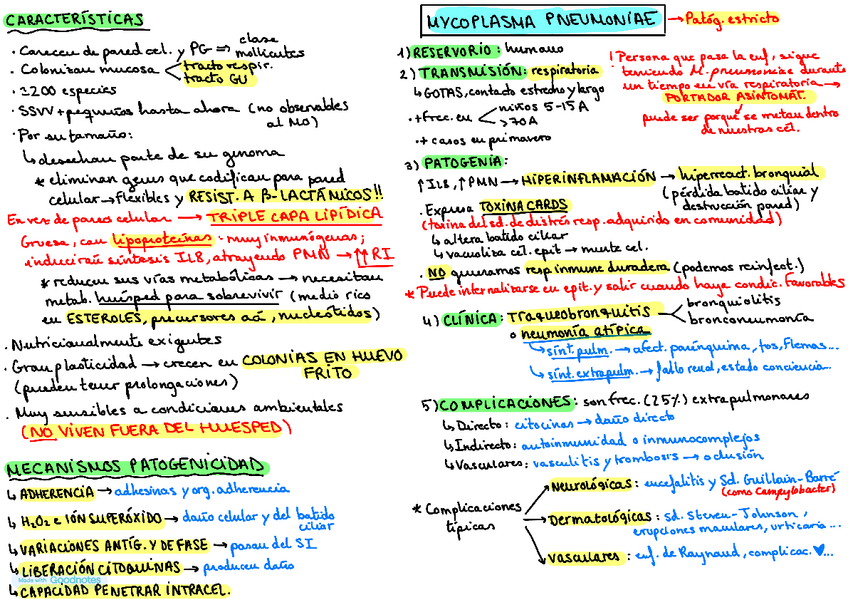 CARACTERÍSTICAS
· Carecen de pared cel. y PG ⇒ clase mollicutes
· Colonizan mucosa
tracto respir.
tracto GU
· >200 especies
· SSVV + pequeños hasta ahora (no observables al MO)
· Por su tamaño:
↳ desechan parte de su genoma
* eliminan genes que codifican para pared
celular → flexibles y RESIST. A β-LACTÁMICOS!!
En vez de pared celular → TRIPLE CAPA LIPÍDICA
Gruesa, con lipoproteínas · muy inmunógenas;
inducirán síntesis IL8, atrayendo PMN → ↑↑ RI
* reducen sus vías metabólicas → necesitan
metab. huésped para sobrevivir (medio rico
en ESTEROLES, precursores aá, nucleótidos)
· Nutricionalmente exigentes
· Gran plasticidad → crecen en COLONIAS EN HUEVO FRITO
(pueden tener prolongaciones)
· Muy sensibles a condiciones ambientales
(NO VIVEN FUERA DEL HUESPED)
MECANISMOS PATOGENICIDAD
↳ ADHERENCIA → adhesinas y org. adherencia
↳ H₂O₂ e IÓN SUPERÓXIDO → daño celular y del batido ciliar
↳ VARIACIONES ANTÍG. Y DE FASE → pasan del SI
↳ LIBERACIÓN CITOQUINAS → producen daño
↳ CAPACIDAD PENETRAR INTRACEL.
Made with Goodnotes
MYCOPLASMA PNEUMONIAE → Patóg. estricto
1) RESERVORIO: humano
2) TRANSMISIÓN: respiratoria
↳ GOTAS, contacto estrecho y largo
· + frec. en
niños 5-15A
>70A
· + casos en primavera
! Persona que pasa la enf, sigue
teniendo M. pneumoniae durante
un tiempo en vía respiratoria →
PORTADOR ASINTOMÁT.
puede ser porque se metan dentro
de nuestras cél.
3) PATOGENIA:
↑IL8, ↑PMN → HIPERINFLAMACIÓN → hiperreact. bronquial
(pérdida batido ciliar y
destrucción pared)
· Expresa TOXINA CARDS
(toxina del sd. de distrés resp. adquirido en comunidad)
↳ altera batido ciliar
↳ vacuoliza cél. epit → muerte cel.
· NO generamos resp inmune duradera (podemos reinfect.)
* Puede internalizarse en epit. y salir cuando haya condic. favorables
4) CLÍNICA: Traqueobronquitis
bronquiolitis
bronconeumonía
o neumonía atípica
↳ sínt. pulm. → afect. parénquima, tos, flemas...
↳ sínt. extrapulm. → fallo renal, estado conciencia...
5) COMPLICACIONES: son frec. (25%) extrapulmonares
↳ Directo: citocinas → daño directo
↳ Indirecto: autoinmunidad o inmunocomplejos
↳ Vasculares: vasculitis y trombosis → oclusión
* Complicaciones típicas
Neurológicas: encefalitis y Sd. Guillain-Barré
(como Campylobacter)
Dermatológicas: sd. Steven-Johnson,
erupciones maculares, urticaria...
Vasculares: enf. de Raynaud, complicac. ♥...